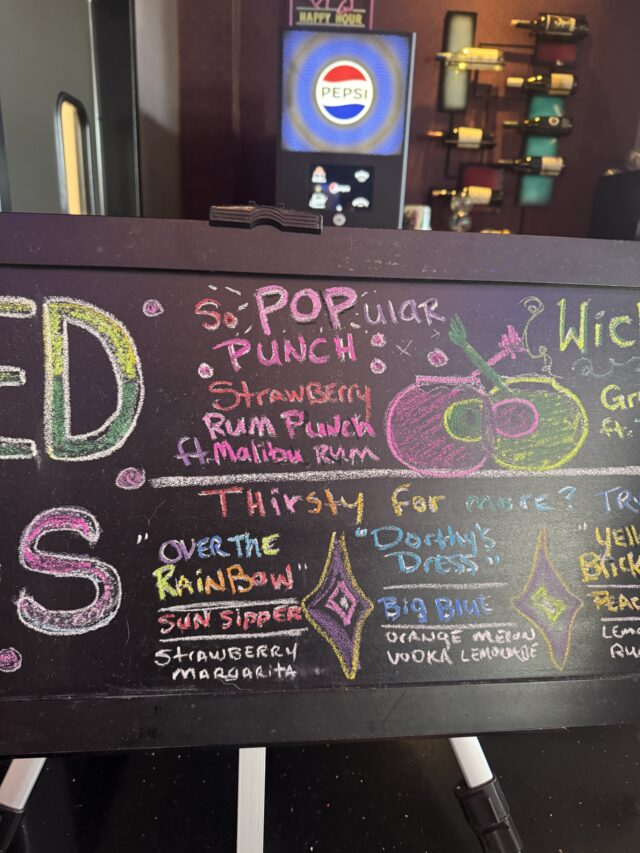 HAPPY HOUR
PEPSI
ED
So POPular
PUNCH
Strawberry
Rum Punch
ft. Malibu Rum
Wic
Gr
ft.
S
Thirsty for more? TR
"OVER THE
RAINBOW"
SUN SIPPER
STRAWBERRY
MARGARITA
"Dorthy's
Dress"
Big Blue
ORANGE MELON
VODKA LEMONADE
"Yell
Brick
PEAC
LEMO
RU